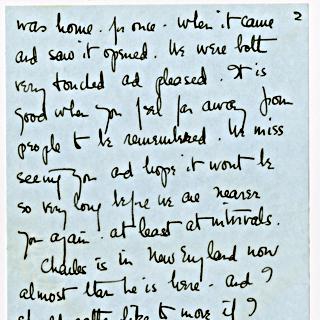 2
was home. for once. when it came
and saw it opened. We were both
very touched ad pleased. It is
good when you feel far away from
people to be remembered. We miss
seeing you ad hope it wont be
so very long before we are nearer
you again. at least at intervals.
Charles is in New England now
almost than he is here. and I
rather like to move if I